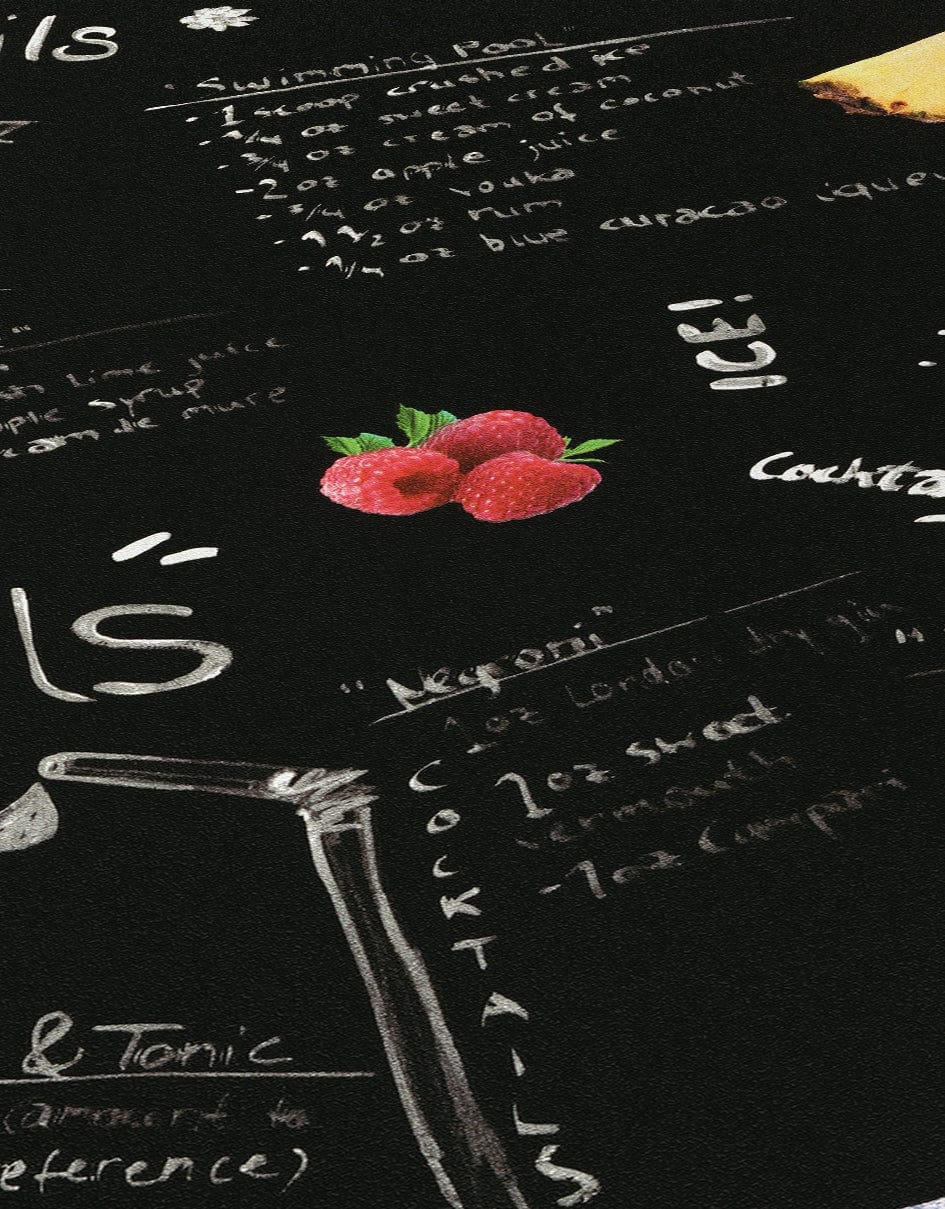 ils
"Swimming Pool"
-1 scoop crushed ice
-3/4 oz sweet cream
-3/4 oz cream of coconut
-2 oz apple juice
-3/4 oz vodka
-1 1/2 oz rum
-1/4 oz blue curacao
lime juice
syrup
de mure
ICE!
Cockta
ls
"Negroni"
1oz London dry gin
-1oz sweet
vermouth
-1oz Campari
COCKTAILS
& Tonic
eference)